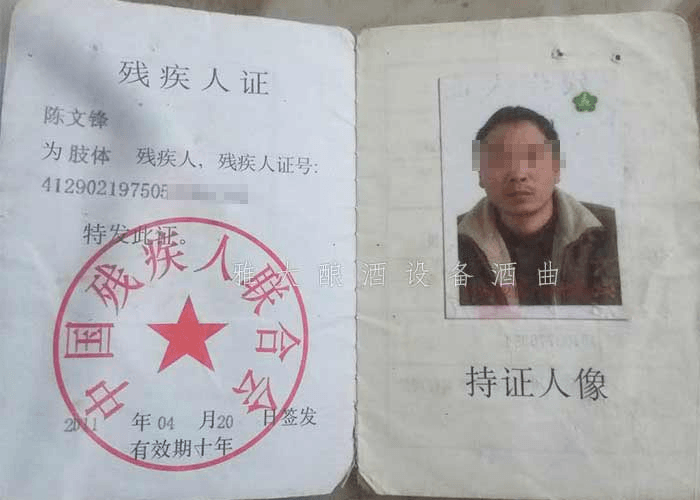 残疾人证
陈文锋
为 肢体 残疾人，残疾人证号:
412902197505
特发此证。
中国残疾人联合会
2011 年 04 月 20 日签发
有效期十年
雅大酿酒设备酒曲
持证人像